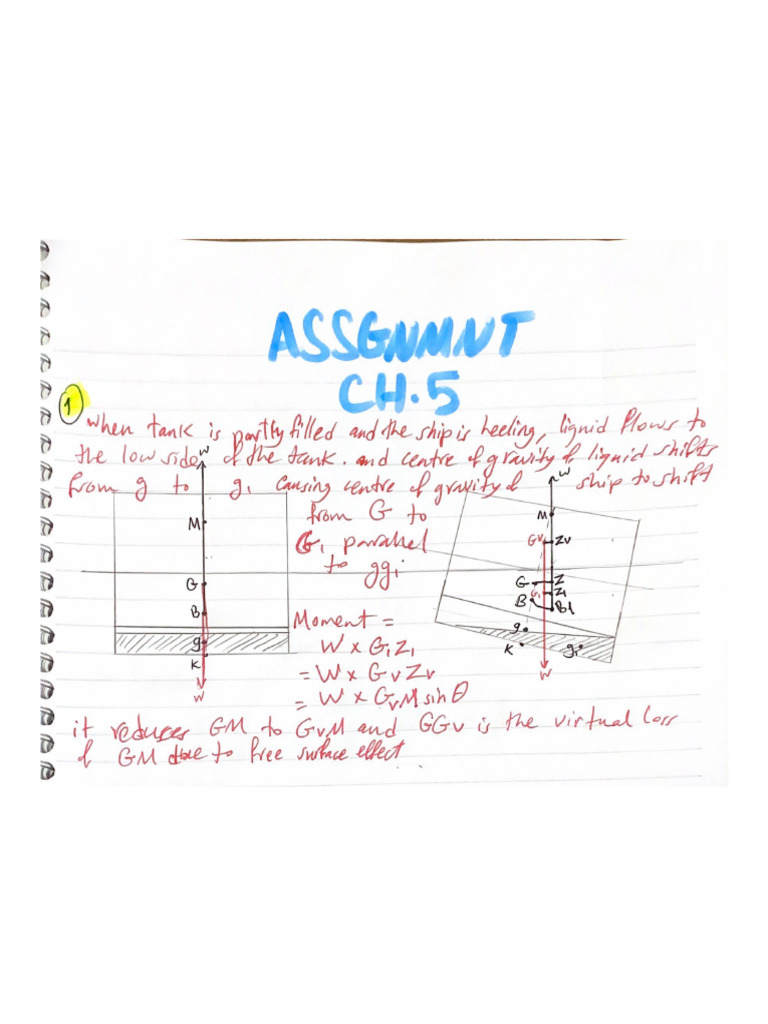 ASSGNMNT
CH.5
1
when tank is partly filled and the ship is heeling, liquid flows to
the low side of the tank. and centre of gravity of liquid shifts
from g to g1 causing centre of gravity of ship to shift
from G to
G1 parallel
to gg1
W
M
G
B
g
K
W
Moment =
W x G1Z1
= W x GvZv
= W x GvM sin θ
W
M
Gv Zv
G Z
G1 Z1
B B1
g
K g1
W
it reduces GM to GvM and GGv is the virtual loss
of GM due to free surface effect